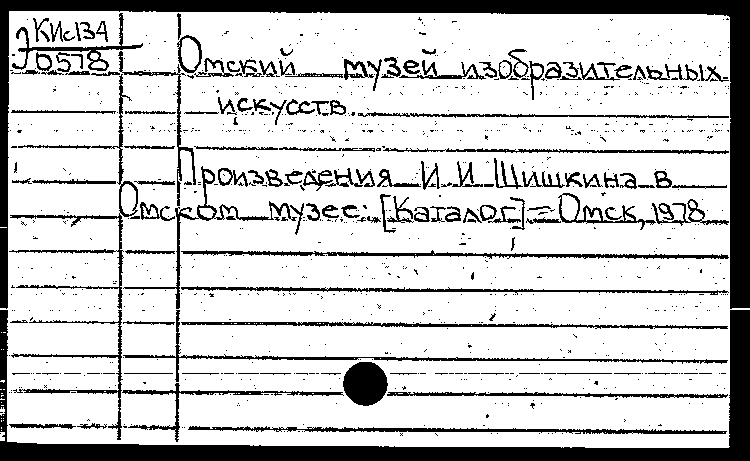 КИс134
J0578
Омский музей изобразительных
искусств.
Произведения И. И. Шишкина в
Омском музее: [Каталог] = Омск, 1978